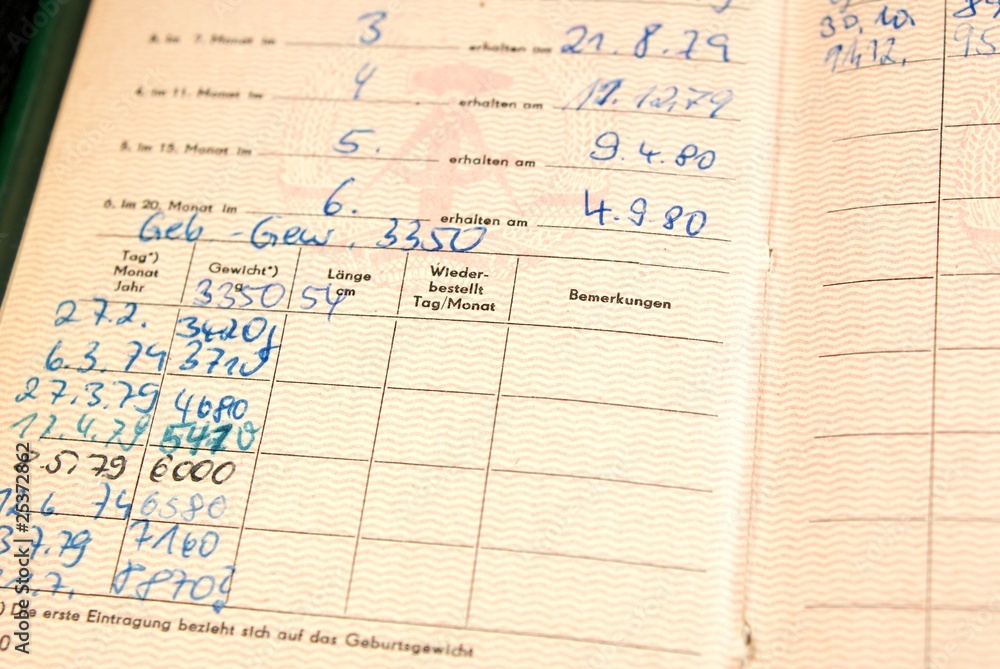 3. im 7. Monat im 3 erhalten am 21.8.79
4. im 11. Monat im 4 erhalten am 11.12.79
5. im 15. Monat im 5. erhalten am 9.4.80
6. im 20. Monat im 6. erhalten am 4.9.80
Geb.-Gew. 3350
Tag*) Monat Jahr Gewicht*) g Länge cm Wiederbestellt Tag/Monat Bemerkungen
3350 54
27.2. 3420g
6.3.79 3710g
27.3.79 4680
5470
5.79 6000
6. 79 6580
7.79 7160
7. 8870g
*) Die erste Eintragung bezieht sich auf das Geburtsgewicht
30.10. 89
9.12. 95
Adobe Stock | #25372862